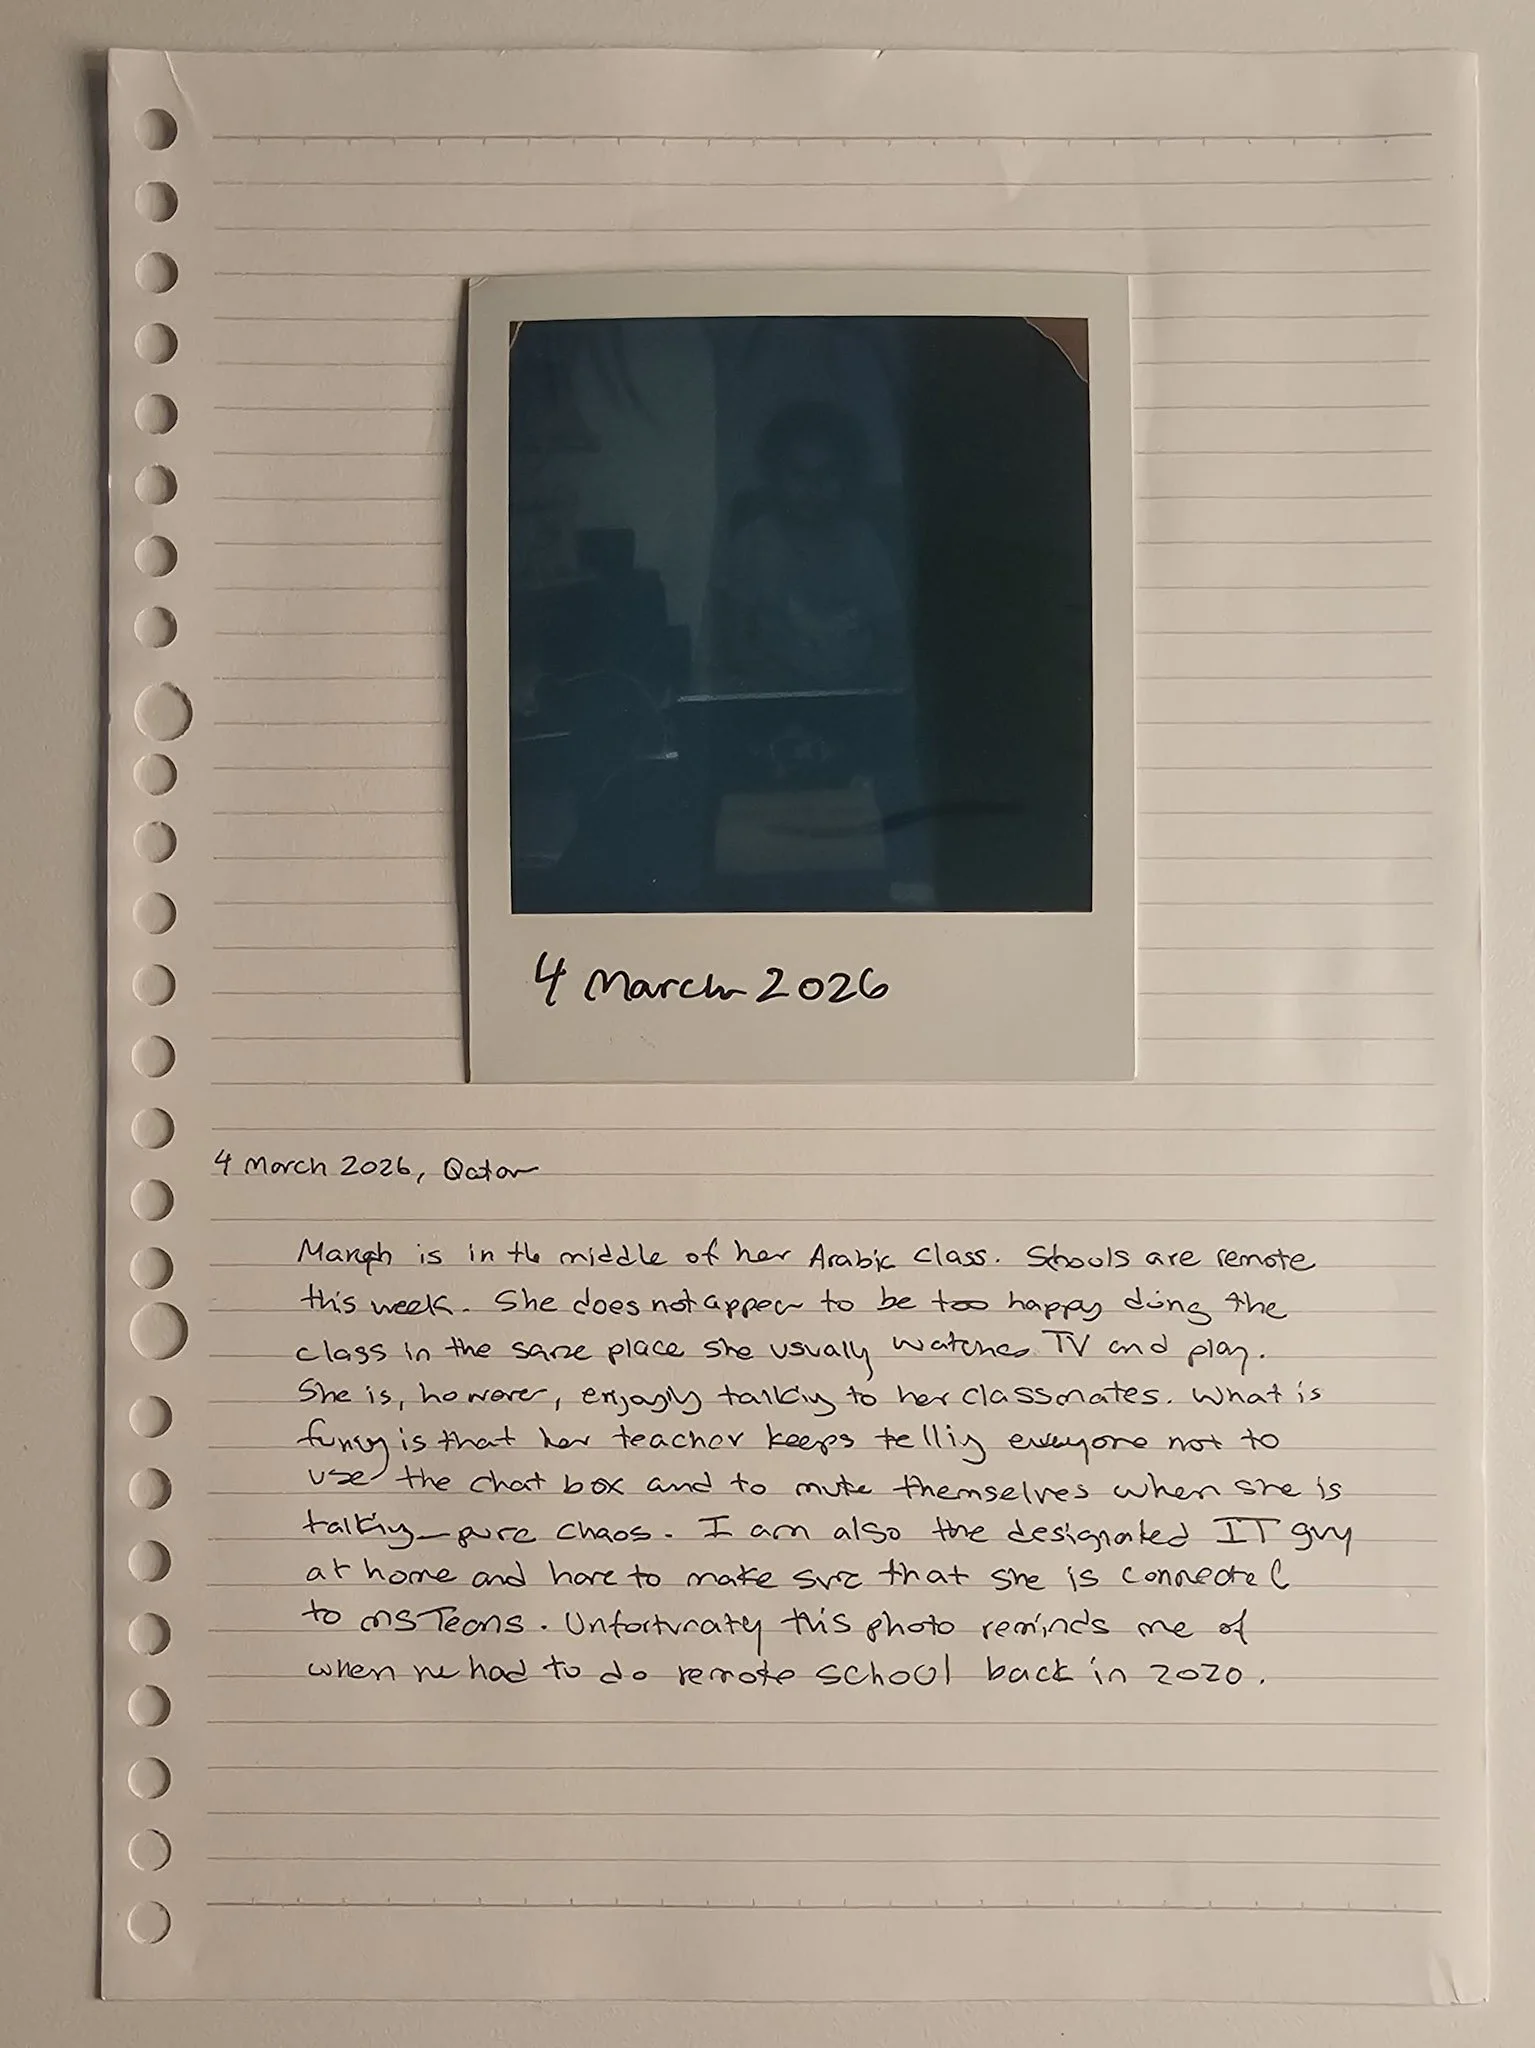 4 March 2026
4 March 2026, Qatar
is in the middle of her Arabic class. Schools are remote
this week. She does not appear to be too happy doing the
class in the same place she usually watches TV and play.
She is, however, enjoying talking to her classmates. What is
funny is that her teacher keeps telling everyone not to
use the chat box and to mute themselves when she is
talking—pure chaos. I am also the designated IT guy
at home and have to make sure that she is connected
to MS Teams. Unfortunately this photo reminds me of
when we had to do remote school back in 2020.